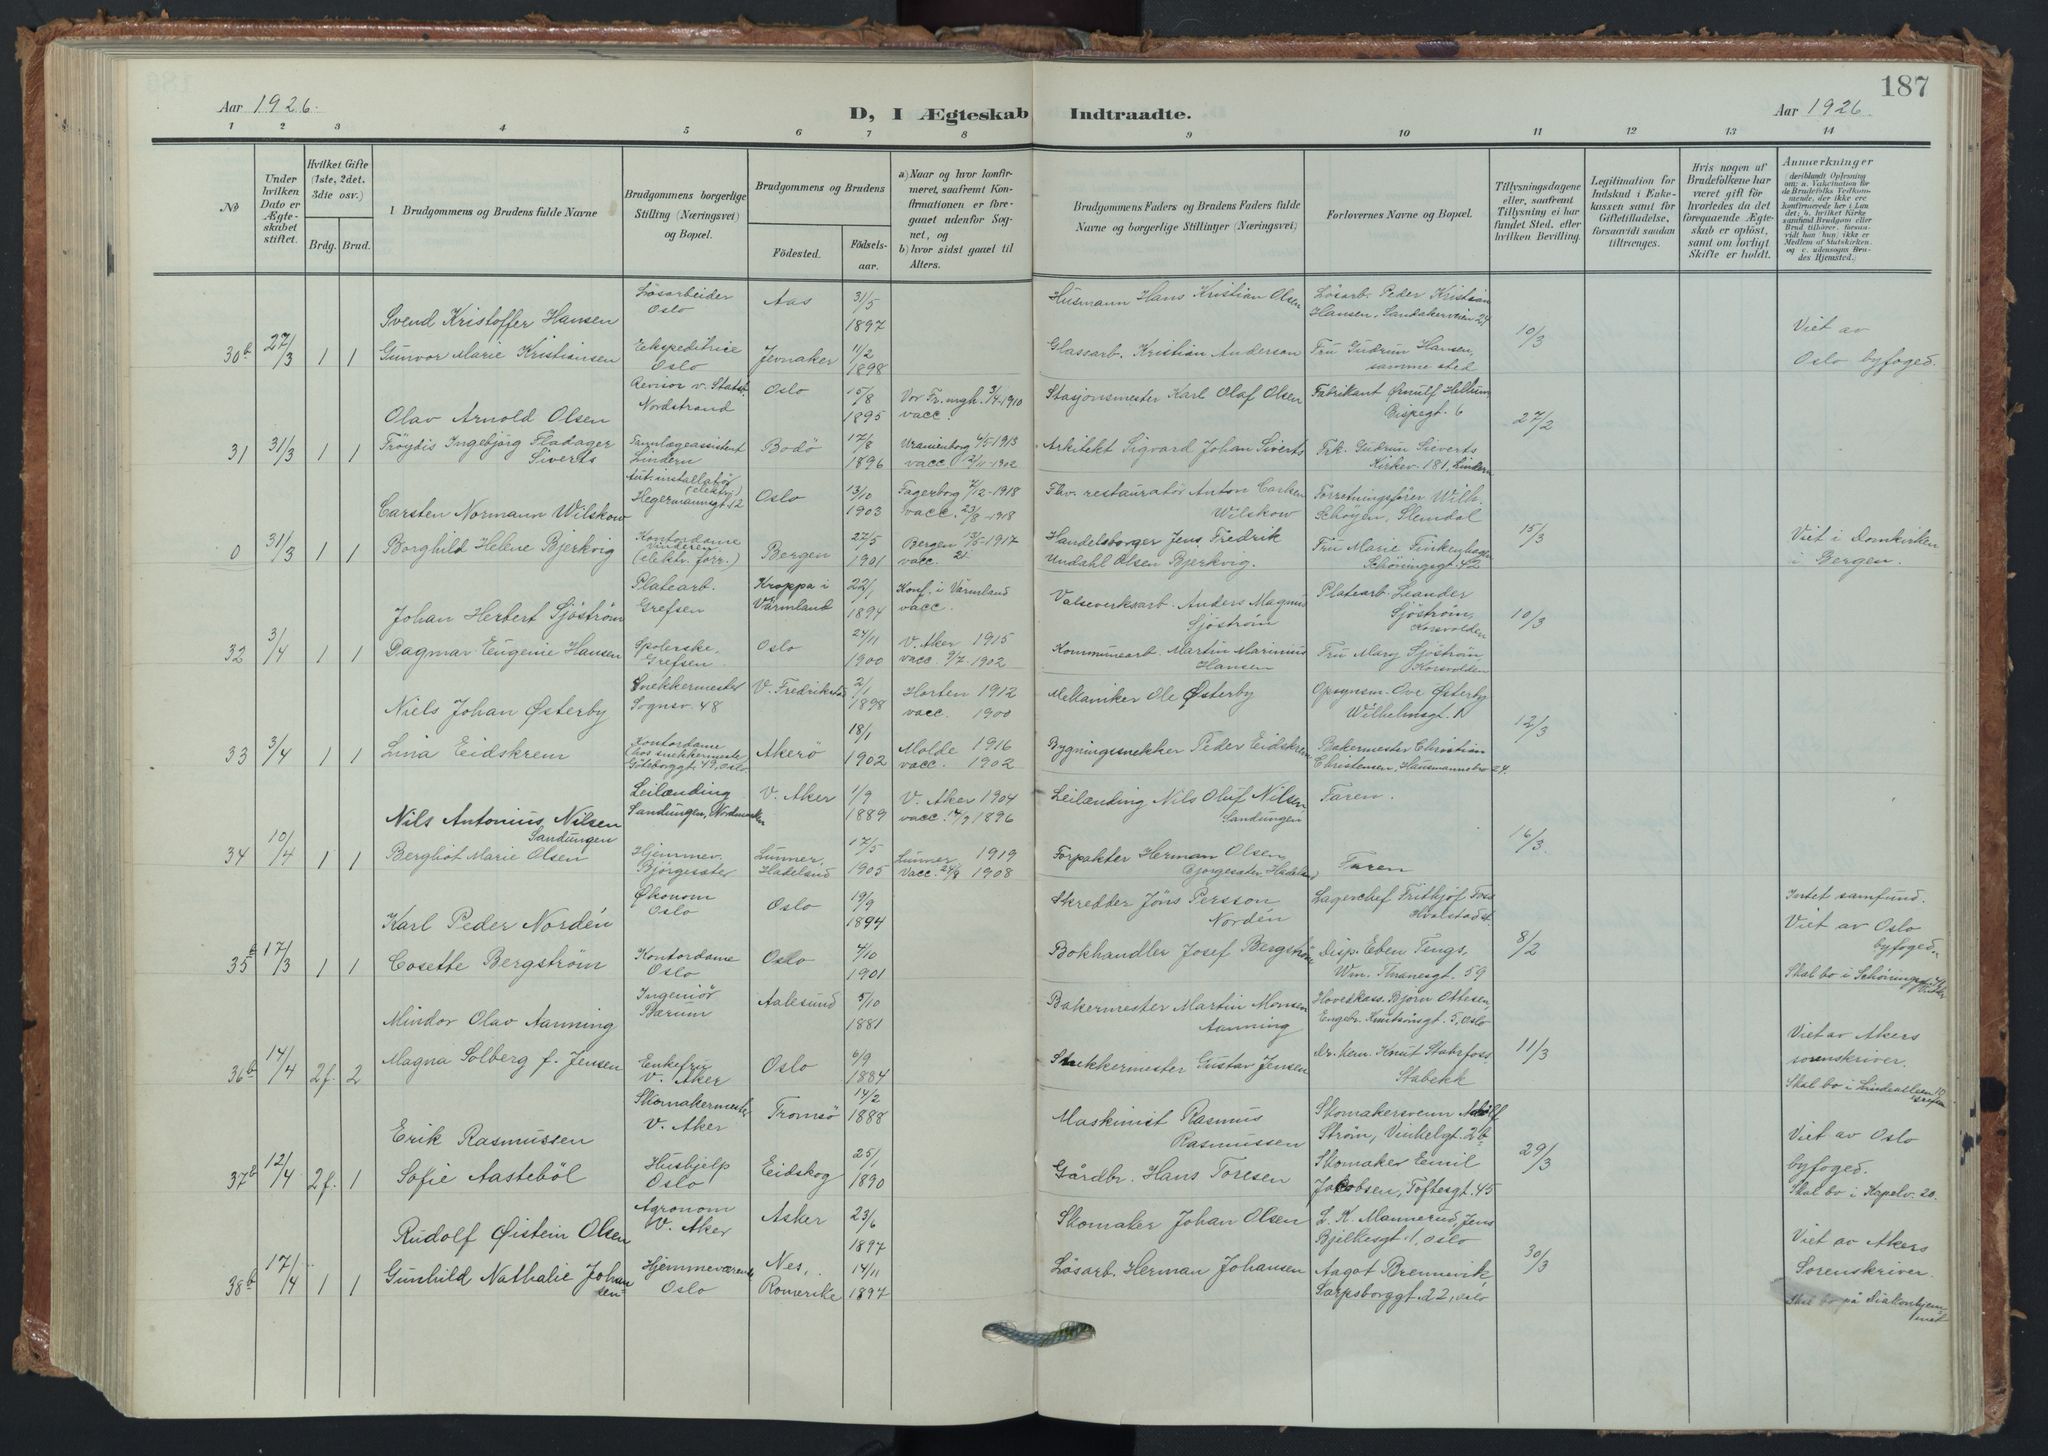 187
Aar 1926.
D, I Ægteskab Indtraadte.
Aar 1926
1 2 3 4 5 6 7 8 9 10 11 12 13 14
No
Under hvilken Dato er Ægteskabet stiftet.
Hvilket Gifte (1ste, 2det, 3die osv.)
Brdg. Brud.
Brudgommens og Brudens fulde Navne
Brudgommens borgerlige Stilling (Næringsvei) og Bopæl.
Brudgommens og Brudens
Fødested.
Fødselsaar.
a) Naar og hvor konfirmeret, saafremt Konfirmationen er foregaaet udenfor Sognet, og
b) hvor sidst gaaet til Alters.
Brudgommens Faders og Brudens Faders fulde Navne og borgerlige Stillinger (Næringsvei)
Forlovernes Navne og Bopæl.
Tillysningsdagene eller, saafremt Tillysning ei har fundet Sted, efter hvilken Bevilling.
Legitimation for Indskud i Enkekassen samt for Giftetilladelse, forsaavidt saadan tiltrænges.
Hvis nogen af Brudefolkene har været gift før hvorledes da det foregaaende Ægteskab er opløst, samt om lovligt Skifte er holdt.
Anmærkninger
(deriblandt Oplysning om: a. Vakcination for de Brudefolks Vedkommende, der ikke ere konfirmerede her i Landet; b. hvilket Kirkesamfund Brudgom eller Brud tilhører, forsaavidt han (hun) ikke er Medlem af Statskirken, og c. udensogns Brudes Hjemsted.)
Svend Kristoffer Hansen Løsarbeider Oslo Aas 31/5 1897 Husmann Hans Kristian Olsen Løsarb. Peder Kristian Hansen, Sandakerveien 24
30b 27/3 1 1 Gunvor Marie Kristiansen Ekspeditrice Oslo Jevnaker 11/2 1898 Glassarb. Kristian Anderson Fru Gudrun Hansen, samme sted 10/3 Viet av Oslo byfoged.
Olav Arnold Olsen Revisor v. Statsb. Nordstrand Oslo 15/8 1895 Vor Fr. mgh. 3/4-1910 vacc. Stasjonsmester Karl Olaf Olsen Fabrikant Ørnulf Hellum Bispegt. 6
31 31/3 1 1 Frøydis Ingebjørg Fladager Siverts Tannlægeassistent Lindern Bodø 17/8 1896 Uranienborg 4/5-1913 vacc. 2/11-1902 Arkitekt Sigvard Johan Siverts Frk. Gudrun Sieverts Kirkev. 181, Lindern 27/2
Carsten Normann Wilskow Aut. installatør (elektr.) Hegermannsgt. 12 Oslo 13/10 1903 Fagerborg 7/12-1918 vacc. 23/8-1918 Fhv. restauratør Anton Carken Wilskow Forretningsfører Wilh. Schøyen, Slemdal
0 31/3 1 1 Borghild Helene Bjerkvig Kontordame Vinderen (elektr. forr.) Bergen 27/5 1901 Bergen 13/5-1917 vacc. Handelsborger Jens Fredrik Undahl Olsen Bjerkvig. Fru Marie Finkenhagen Schøningsgt. 42 15/3 Viet i Domkirken i Bergen.
Johan Herbert Sjöström Platearb. Grefsen Kroppa i Värmland 22/1 1894 Konf. i Värmland vacc. Valseverksarb. Anders Magnus Sjöström Platearb. Leander Sjöström, Korsvolden
32 3/4 1 1 Dagmar Eugenie Hansen Spolerske, Grefsen Oslo 24/11 1900 V. Aker 1915 vacc. 9/7-1902 Kommunearb. Martin Marinius Hansen Fru Mary Sjöström Korsvolden 10/3
Niels Johan Østerby Snekkermester Sognsv. 48 V. Fredrikstad 2/1 1898 Horten 1912 vacc. 1900 Mekaniker Ole Østerby Opsynsm. Ove Østerby Wilhelmsgt. 1
33 3/4 1 1 Lina Eidskrem Kontordame (hos snekkermester) Gøteborggt. 49, Oslo Akerø 18/1 1902 Molde 1916 vacc. 1902 Bygningssnekker Peder Eidskrem Bakermester Christian Christensen, Hausmannsbro 24. 12/3
Nils Antonius Nilsen Sandungen Leilænding Sandungen, Nordmarken V. Aker 1/9 1889 V. Aker 1904 vacc. 17/9 1896 Leilænding Nils Oluf Nilsen Sandungen Faren.
34 10/4 1 1 Berghot Marie Olsen Hjemmev. Bjørgesæter Lunner, Hadeland 17/5 1905 Lunner 1919 vacc. 24/9 1908 Forpakter Herman Olsen Bjørgesæter, Hadeland Faren 16/3.
Karl Peder Nordén Økonom Oslo Oslo 19/9 1894 Skredder Jöns Persson Nordén Lagerchef Frithjof Foss Hvalstad st. Intet samfund.
35b 17/3 1 1 Cosette Bergström Kontordame Oslo Oslo 4/10 1901 Bokhandler Josef Bergström Disp. Eben Tengs, Wm. Thranesgt. 59 8/2 Viet av Oslo byfoged. Skal bo i Schøningsgt.
Mindor Olav Aanning Ingeniør Bærum Aalesund 5/10 1881 Bakermester Martin Monsen Aanning Hovedkass. Bjørn Ottesen, Engebr. Knutsønsgt. 5, Oslo
36b 14/4 2f. 2 Magna Solberg f. Jensen Enkefru V. Aker Oslo 6/9 1884 Snekkermester Gustav Jensen Dr. kem. Knut Stabrfoss Stabekk 11/3 Viet av Akers sorenskriver. Skal bo i Lindealleen 10 Grefsen
Erik Rasmussen Skomakermester V. Aker Tromsø 14/2 1888 Maskinist Rasmus Rasmussen Skomakersvenn Adolf Strøm, Vinkelgt. 2b
37b 12/4 2f. 1 Sofie Aastebøl Hushjelp Oslo Eidskog 25/1 1890 Gårdbr. Hans Toresen Skomaker Emil Jakobsen, Toftesgt. 45 29/3 Viet av Oslo byfoged. Skal bo i Kapelv. 20.
Rudolf Øistein Olsen Agronom V. Aker Asker 23/6 1897 Skomaker Johan Olsen L. K. Mannerud, Jens Bjelkesgt. 1, Oslo
38b 17/4 1 1 Gunhild Nathalie Johansen Hjemmeværende Oslo Nes, Romerike 14/11 1897 Løsarb. Herman Johansen Aagot Brennevik, Sarpsborggt. 22, Oslo 30/3 Viet av Akers Sorenskriver. Skal bo på Diakonhjemmet